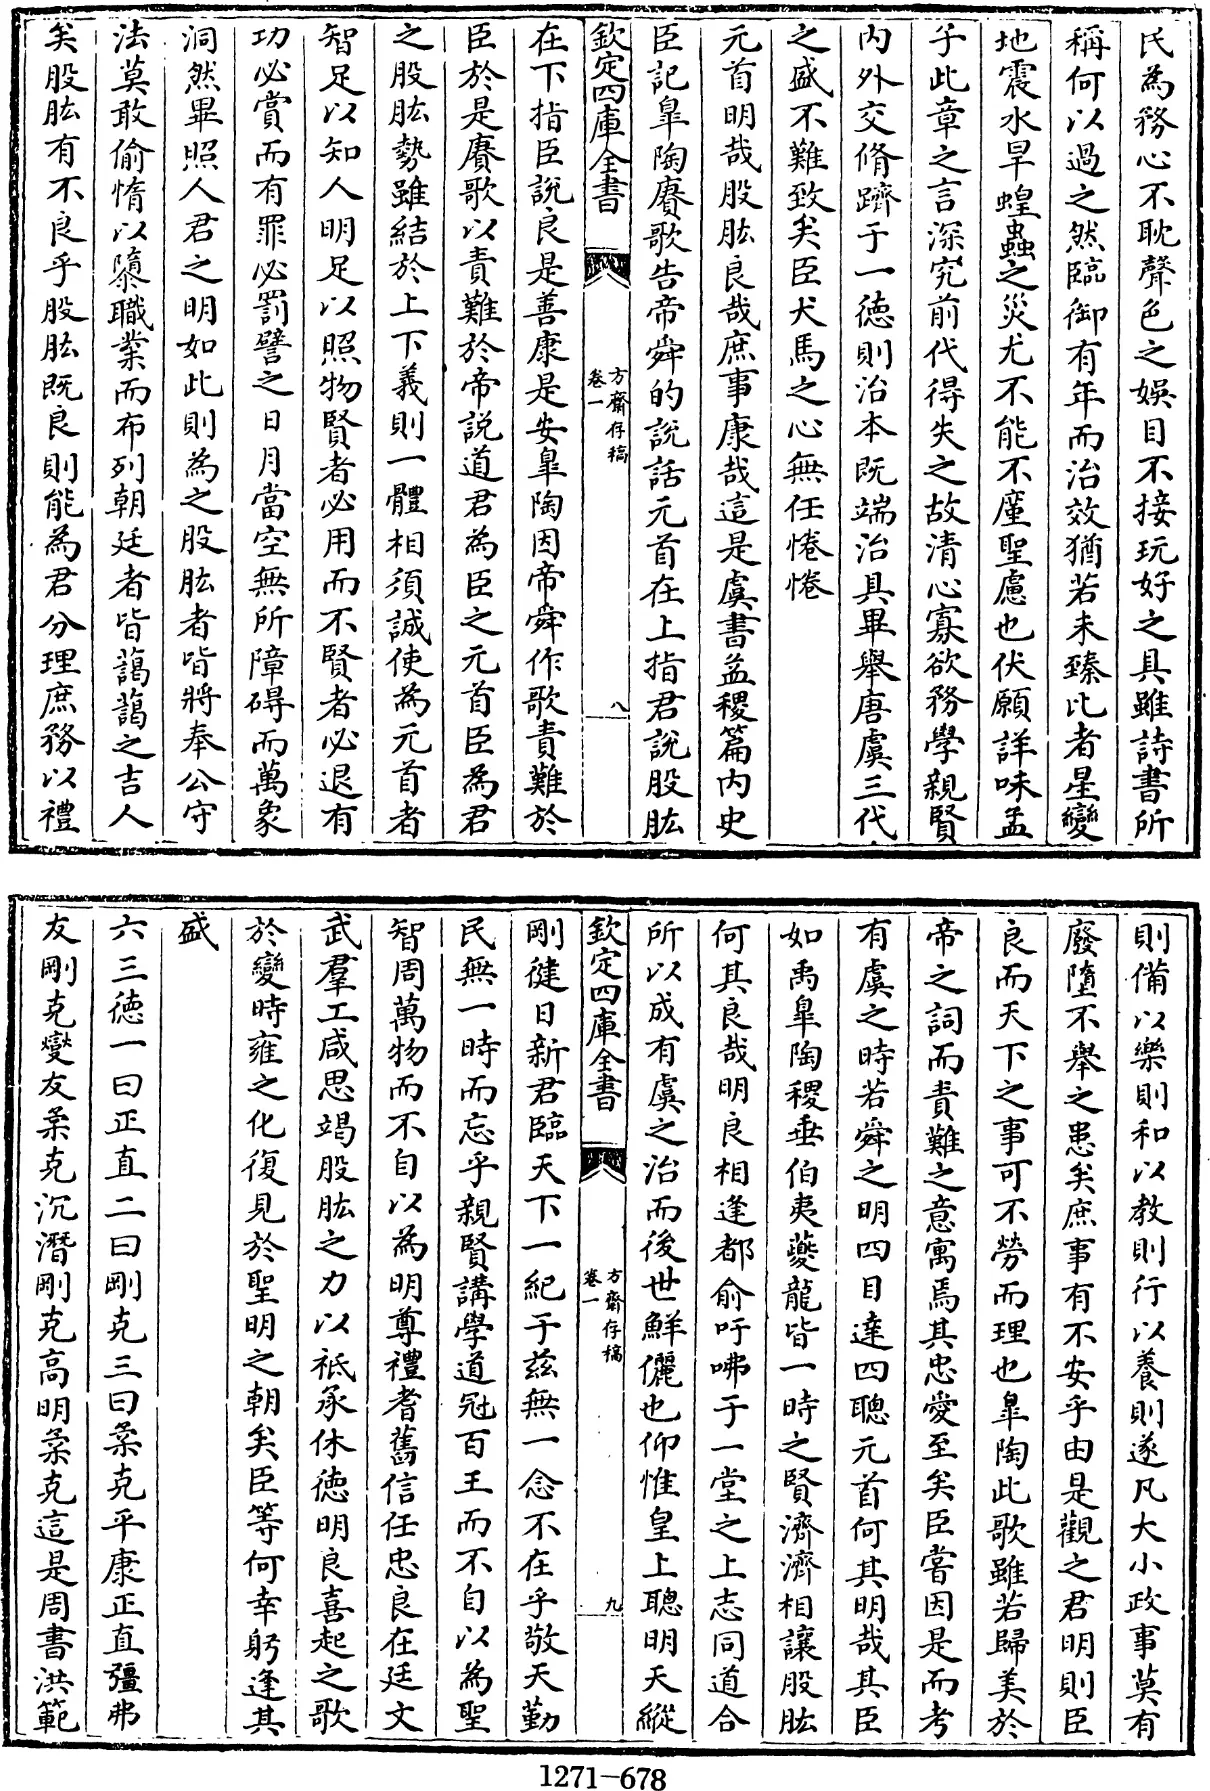 民為務心不耽聲色之娱目不接玩好之具雖詩書所
稱何以過之然臨御有年而治效猶若未臻比者星變
地震水旱蝗蟲之災尤不能不廑聖慮也伏願詳味孟
子此章之言深究前代得失之故清心寡欲務學親賢
内外交脩躋于一徳則治本既端治具畢舉唐虞三代
之盛不難致矣臣犬馬之心無任惓惓
元首明哉股肱良哉庶事康哉這是虞書益稷篇内史
臣記臯陶賡歌告帝舜的説話元首在上指君説股肱
欽定四庫全書
方齋存稿
卷一
八
在下指臣説良是善康是安臯陶因帝舜作歌責難於
臣於是賡歌以責難於帝説道君為臣之元首臣為君
之股肱勢雖結於上下義則一體相須誠使為元首者
智足以知人明足以照物賢者必用而不賢者必退有
功必賞而有罪必罰譬之日月當空無所障碍而萬象
洞然畢照人君之明如此則為之股肱者皆將奉公守
法莫敢偷惰以隳職業而布列朝廷者皆藹藹之吉人
矣股肱有不良乎股肱既良則能為君分理庶務以禮
則備以樂則和以教則行以養則遂凡大小政事莫有
廢墮不舉之患矣庶事有不安乎由是觀之君明則臣
良而天下之事可不勞而理也臯陶此歌雖若歸美於
帝之詞而責難之意寓焉其忠愛至矣臣嘗因是而考
有虞之時若舜之明四目達四聰元首何其明哉其臣
如禹臯陶稷垂伯夷夔龍皆一時之賢濟濟相讓股肱
何其良哉明良相逢都俞吁咈于一堂之上志同道合
所以成有虞之治而後世鮮儷也仰惟皇上聰明天縱
欽定四庫全書
方齋存稿
卷一
九
剛健日新君臨天下一紀于兹無一念不在乎敬天勤
民無一時而忘乎親賢講學道冠百王而不自以為聖
智周萬物而不自以為明尊禮耆舊信任忠良在廷文
武羣工咸思竭股肱之力以祗承休徳明良喜起之歌
於變時雍之化復見於聖明之朝矣臣等何幸躬逢其
盛
六三徳一曰正直二曰剛克三曰柔克平康正直彊弗
友剛克燮友柔克沉潛剛克高明柔克這是周書洪範
1271—678